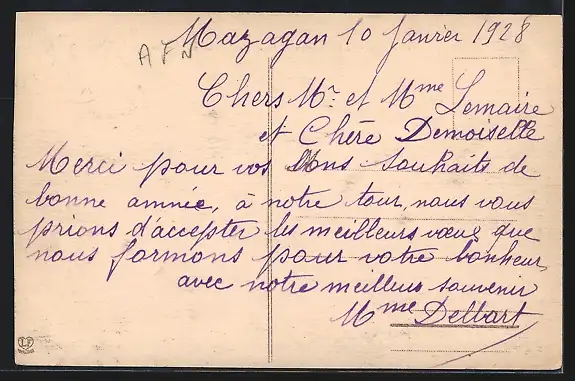 Mazagan 10 Janvier 1928
A F N
Chers Mr. et Mme Lemaire
et Chère Demoiselle
Merci pour vos bons souhaits de
bonne année, à notre tour, nous vous
prions d'accepter les meilleurs vœux que
nous formons pour votre bonheur,
avec notre meilleur souvenir
Mme Delbart